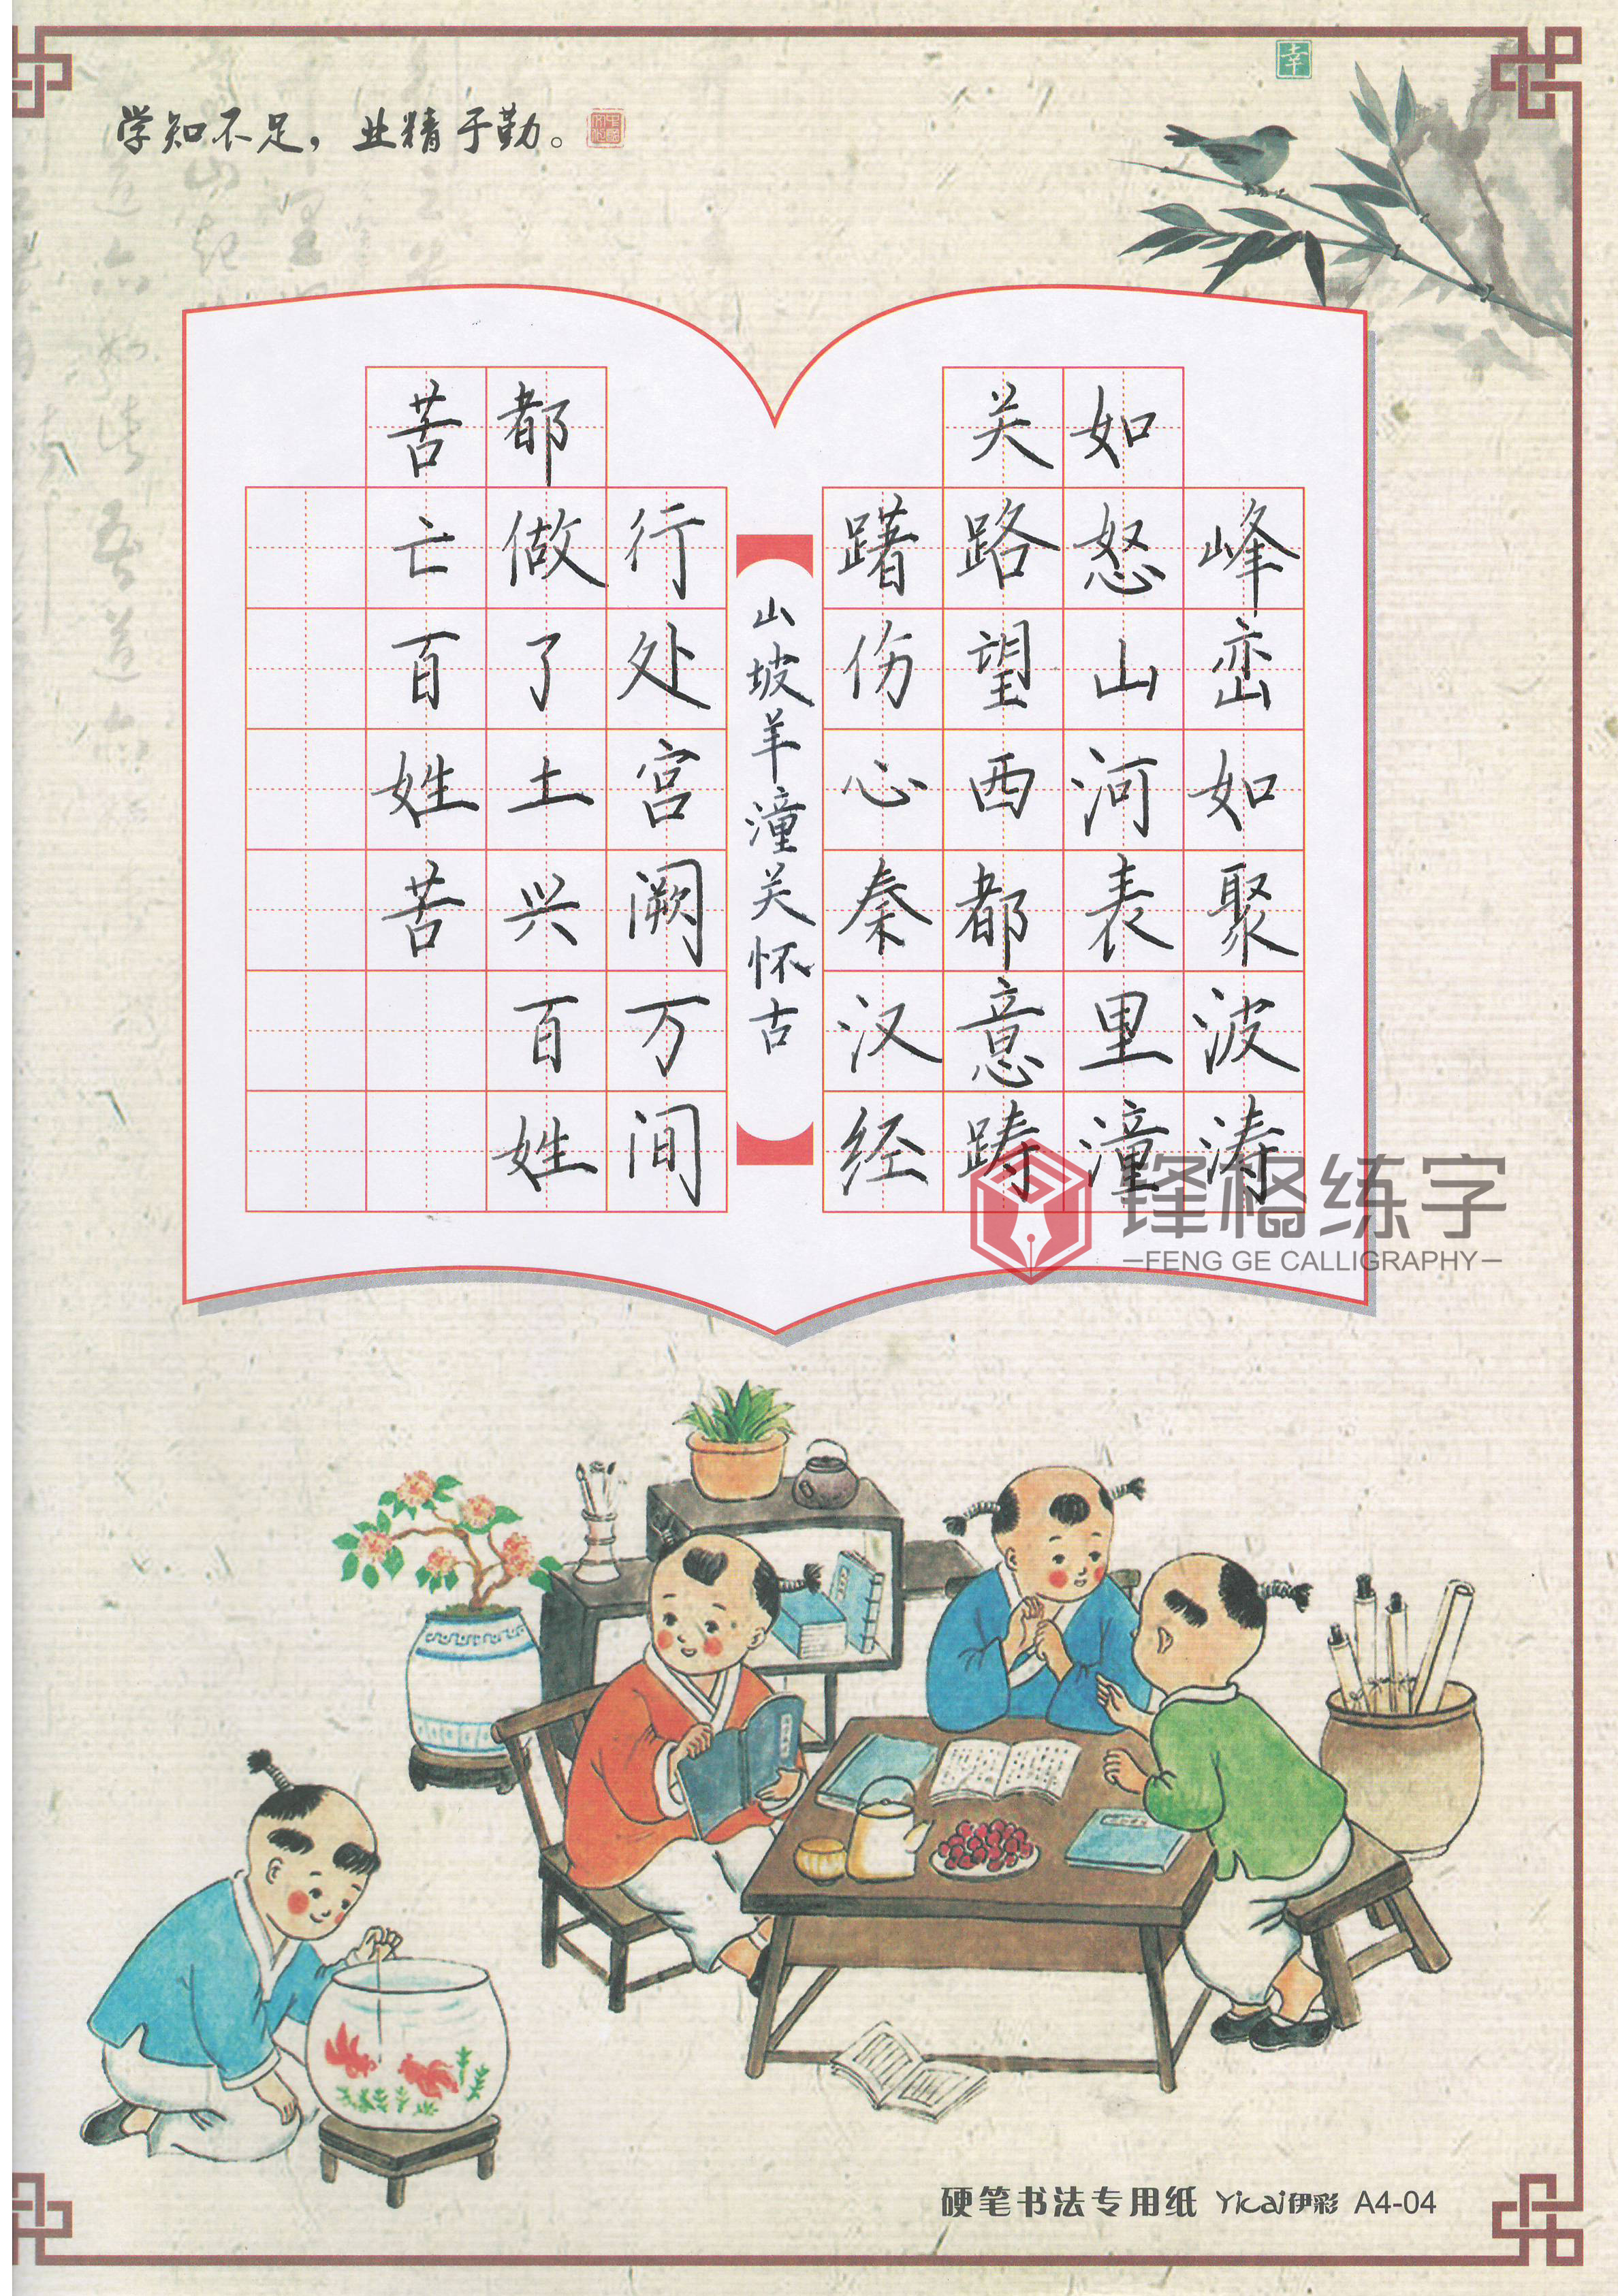 学知不足，业精于勤。
幸
峰峦如聚波涛
如怒山河表里潼
关路望西都意踌
躇伤心秦汉经
山坡羊潼关怀古
行处宫阙万间
都做了土兴百姓
苦亡百姓苦
锋格练字
FENG GE CALLIGRAPHY
硬笔书法专用纸 Yicai伊彩 A4-04